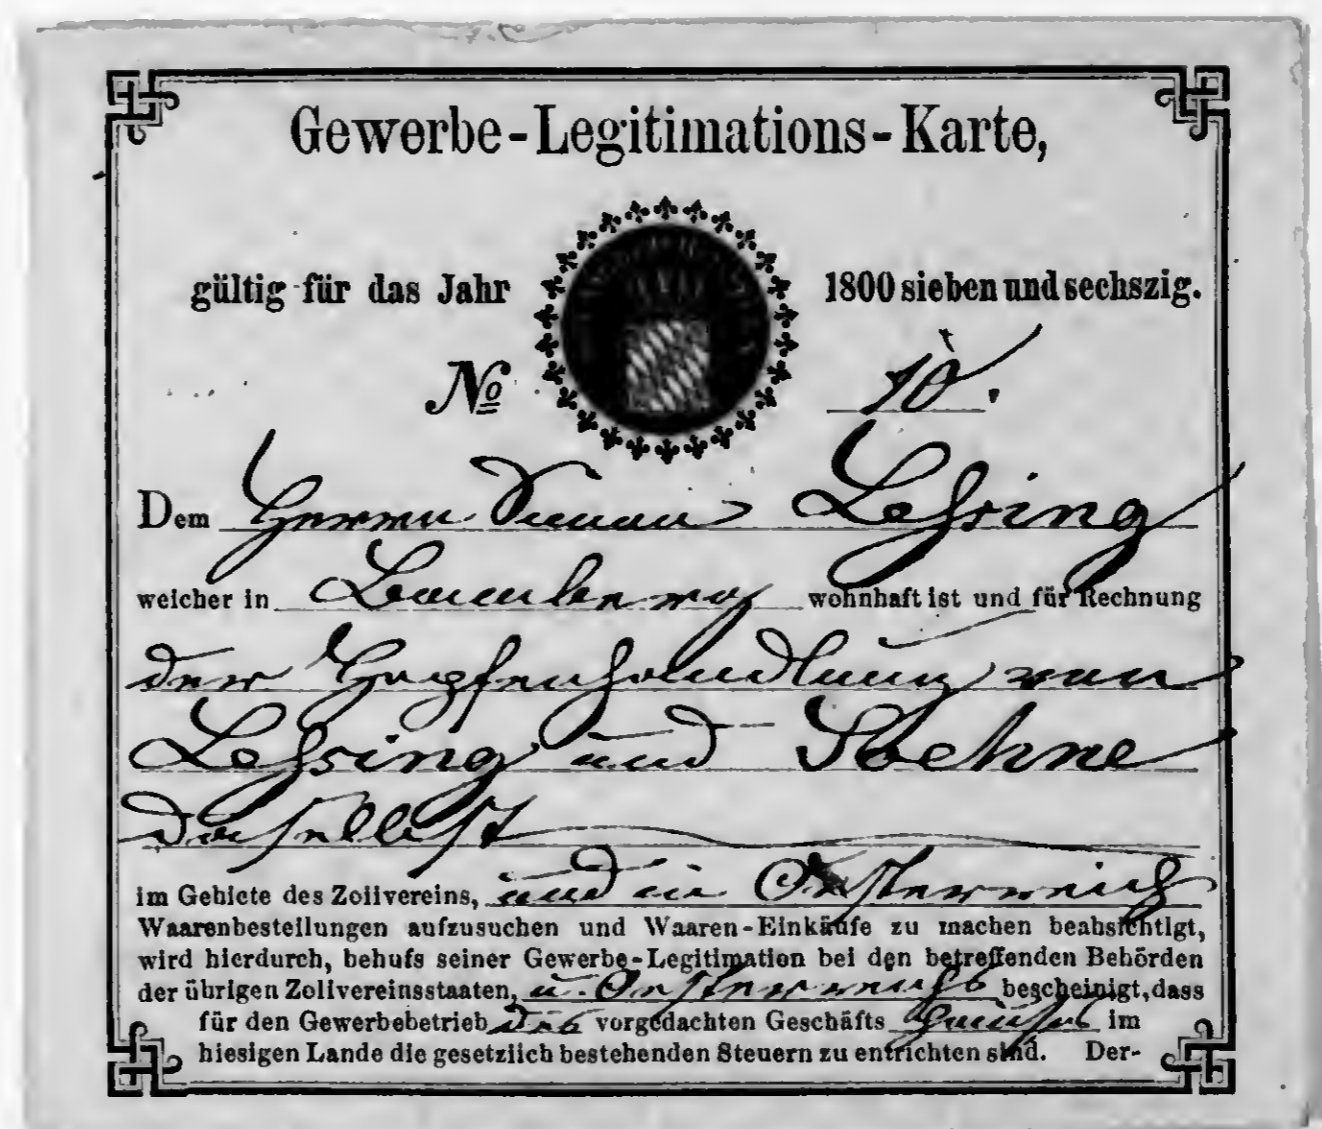 Gewerbe-Legitimations-Karte,
gültig für das Jahr 1800 sieben und sechszig.
No 10.
Dem Herrn Simon Lessing
welcher in Bamberg wohnhaft ist und für Rechnung
der Hopfenhandlung von
Lessing und Soehne
daselbst
im Gebiete des Zollvereins, und in Oesterreich
Waarenbestellungen aufzusuchen und Waaren-Einkäufe zu machen beabsichtigt,
wird hierdurch, behufs seiner Gewerbe-Legitimation bei den betreffenden Behörden
der übrigen Zollvereinsstaaten, u. Oesterreichs bescheinigt, dass
für den Gewerbebetrieb des vorgedachten Geschäfts im
hiesigen Lande die gesetzlich bestehenden Steuern zu entrichten sind. Der-